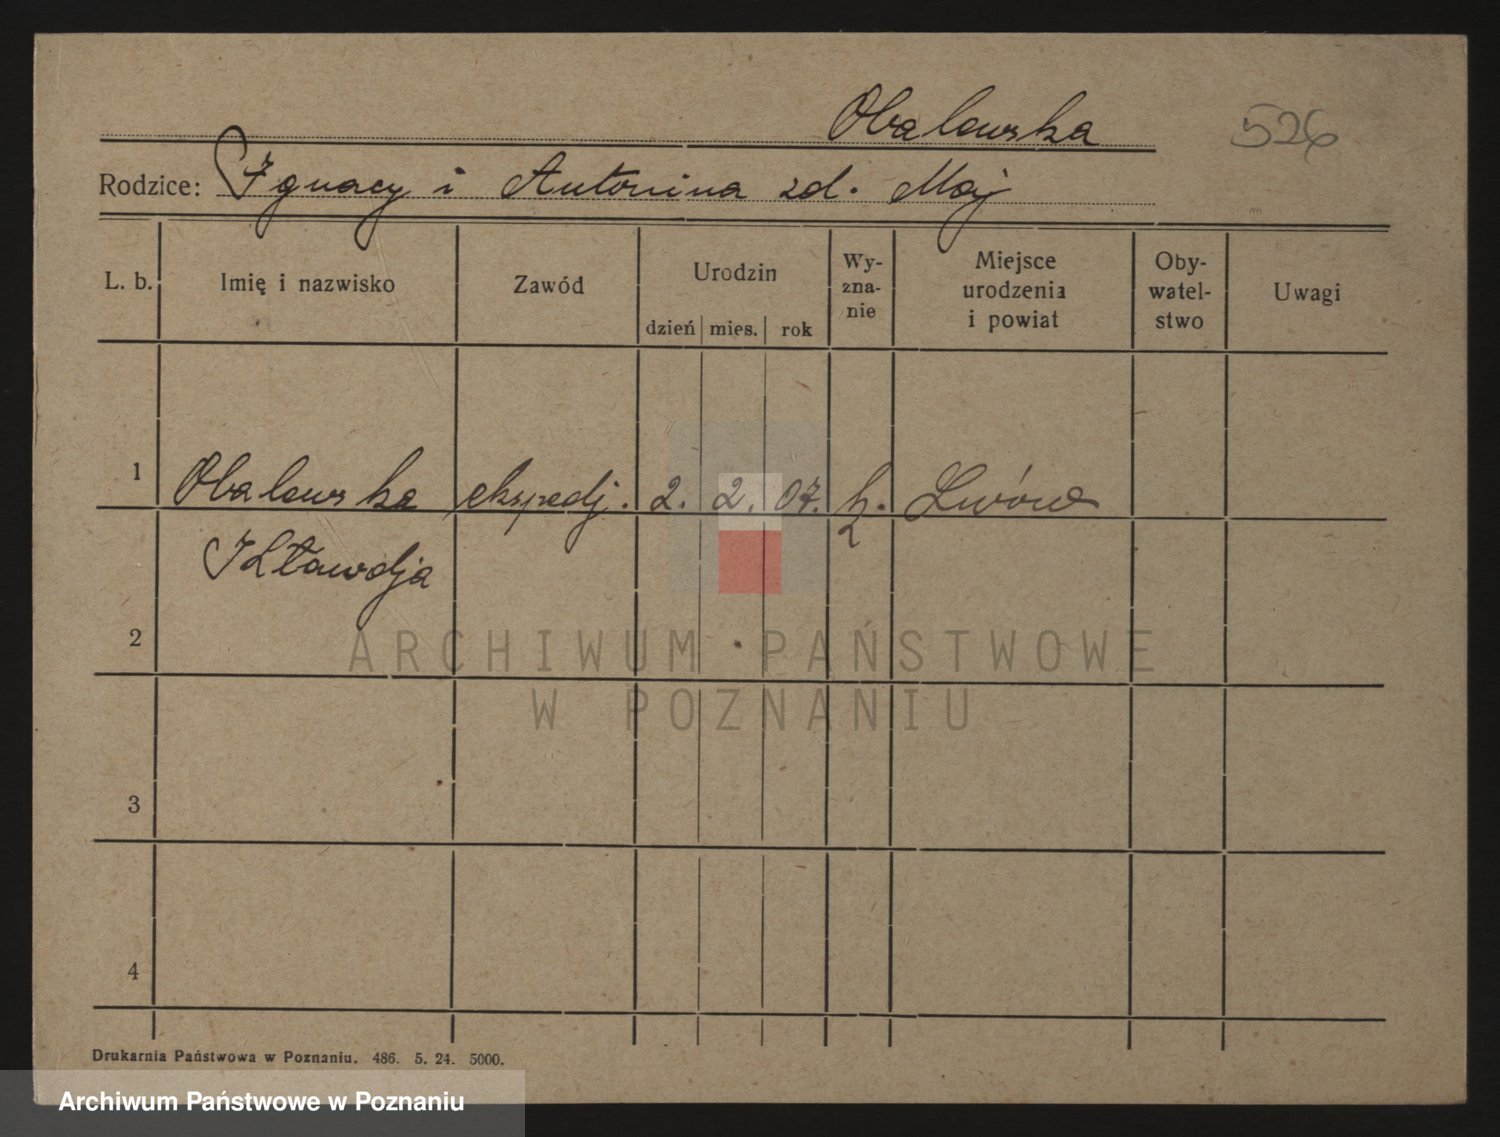 Obalewska
526
Rodzice: Ignacy i Antonina zd. Maj
L. b. Imię i nazwisko Zawód Urodzin Wy- Miejsce Oby- Uwagi
zna- urodzenia watel-
dzień mies. rok nie i powiat stwo
1 Obalewska ekspedj. 2. 2. 07. k. Lwów
Kławdja
2
ARCHIWUM PAŃSTWOWE
W POZNANIU
3
4
Drukarnia Państwowa w Poznaniu. 486. 5. 24. 5000.
Archiwum Państwowe w Poznaniu